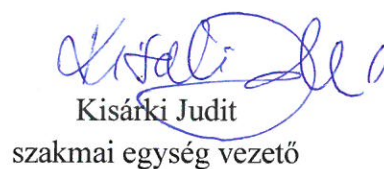 Kisárki Judit
szakmai egység vezető